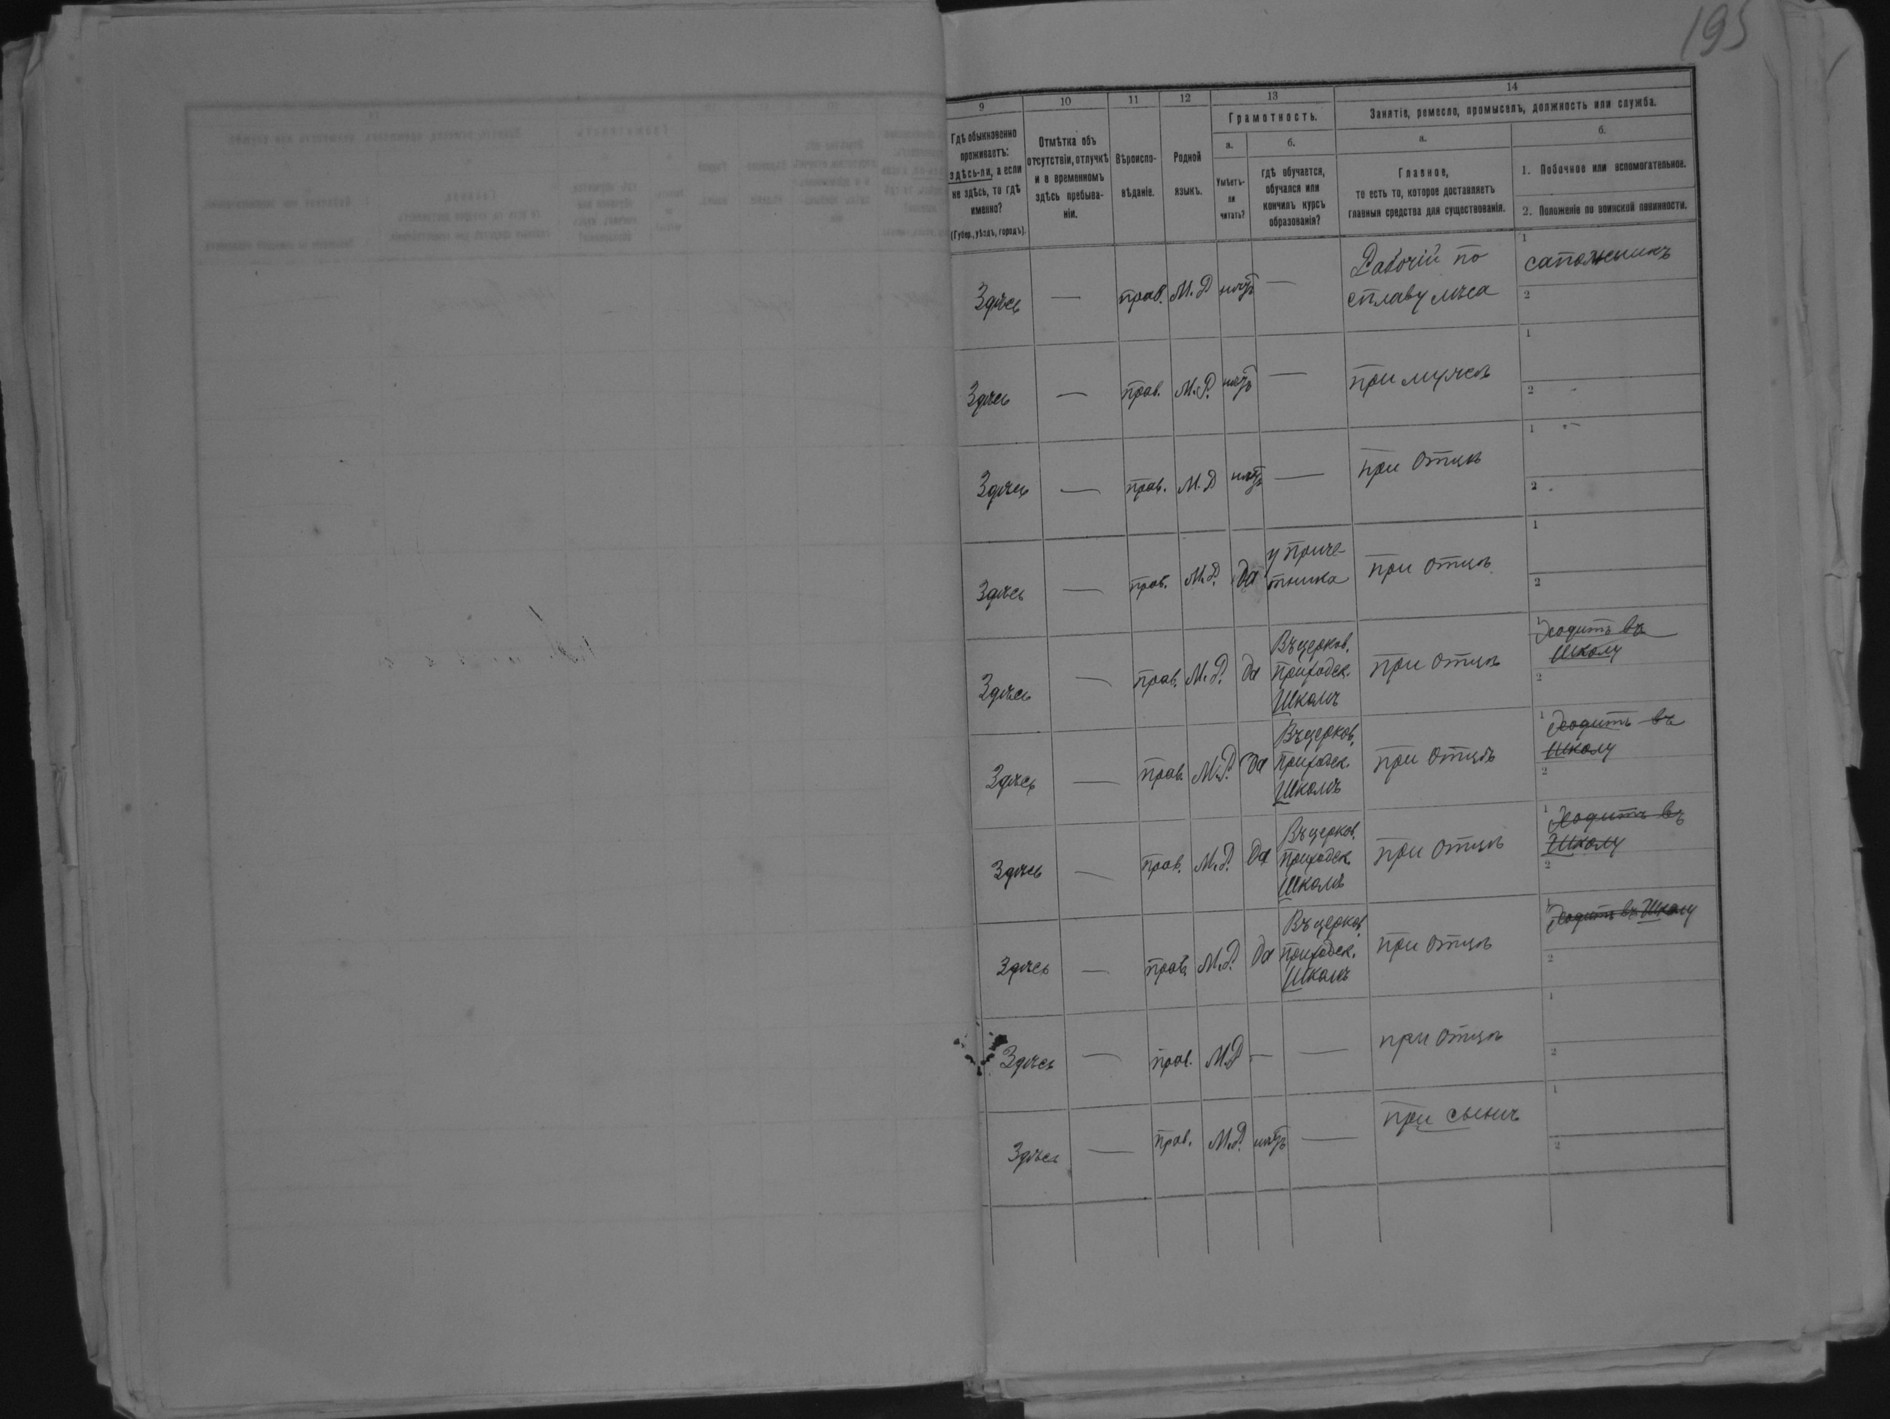 195
9 10 11 12 13 14
Грамотность. Занятіе, ремесло, промыселъ, должность или служба.
Гдѣ обыкновенно
проживаетъ:
здѣсь-ли, а если
не здѣсь, то гдѣ
именно?
(Губер., уѣздъ, городъ).
Отмѣтка объ
отсутствіи, отлучкѣ
и о временномъ
здѣсь пребыва-
ніи.
Вѣроиспо-
вѣданіе.
Родной
языкъ.
а.
Умѣетъ-
ли
читать?
б.
гдѣ обучается,
обучался или
кончилъ курсъ
образованія?
а.
Главное,
то есть то, которое доставляетъ
главныя средства для существованія.
б.
1. Побочное или вспомогательное.
2. Положеніе по воинской повинности.
Здѣсь — прав. М.Р. нѣтъ — Рабочій по
сплаву лѣса
1 сапожникъ
2
Здѣсь — прав. М.Р. нѣтъ — при мужѣ
1
2
Здѣсь — прав. М.Р. нѣтъ — при отцѣ
1
2
Здѣсь — прав. М.Р. Да у приче-
тника
при отцѣ
1
2
Здѣсь — прав. М.Р. да Въ церков.
приходск.
школѣ
при отцѣ
1 Ходитъ въ
школу
2
Здѣсь — прав. М.Р. Да Въ церков.
приходск.
школѣ
при отцѣ
1 Ходитъ въ
школу
2
Здѣсь — прав. М.Р. Да Въ церков.
приходск.
школѣ
при отцѣ
1 Ходитъ въ
школу
2
Здѣсь — прав. М.Р. Да Въ церков.
приходск.
школѣ
при отцѣ
1 Ходитъ въ школу
2
Здѣсь — прав. М.Р. — — при отцѣ
1
2
Здѣсь — прав. М.Р. нѣтъ — при сынѣ
1
2